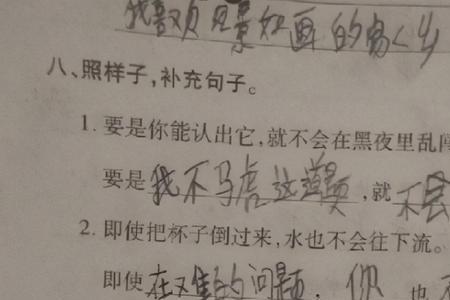 我喜欢风景如画的家乡
八、照样子,补充句子。
1. 要是你能认出它,就不会在黑夜里乱
要是我不马虎这道题,就不会
2. 即使把杯子倒过来,水也不会往下流。
即使在难的问题,你也